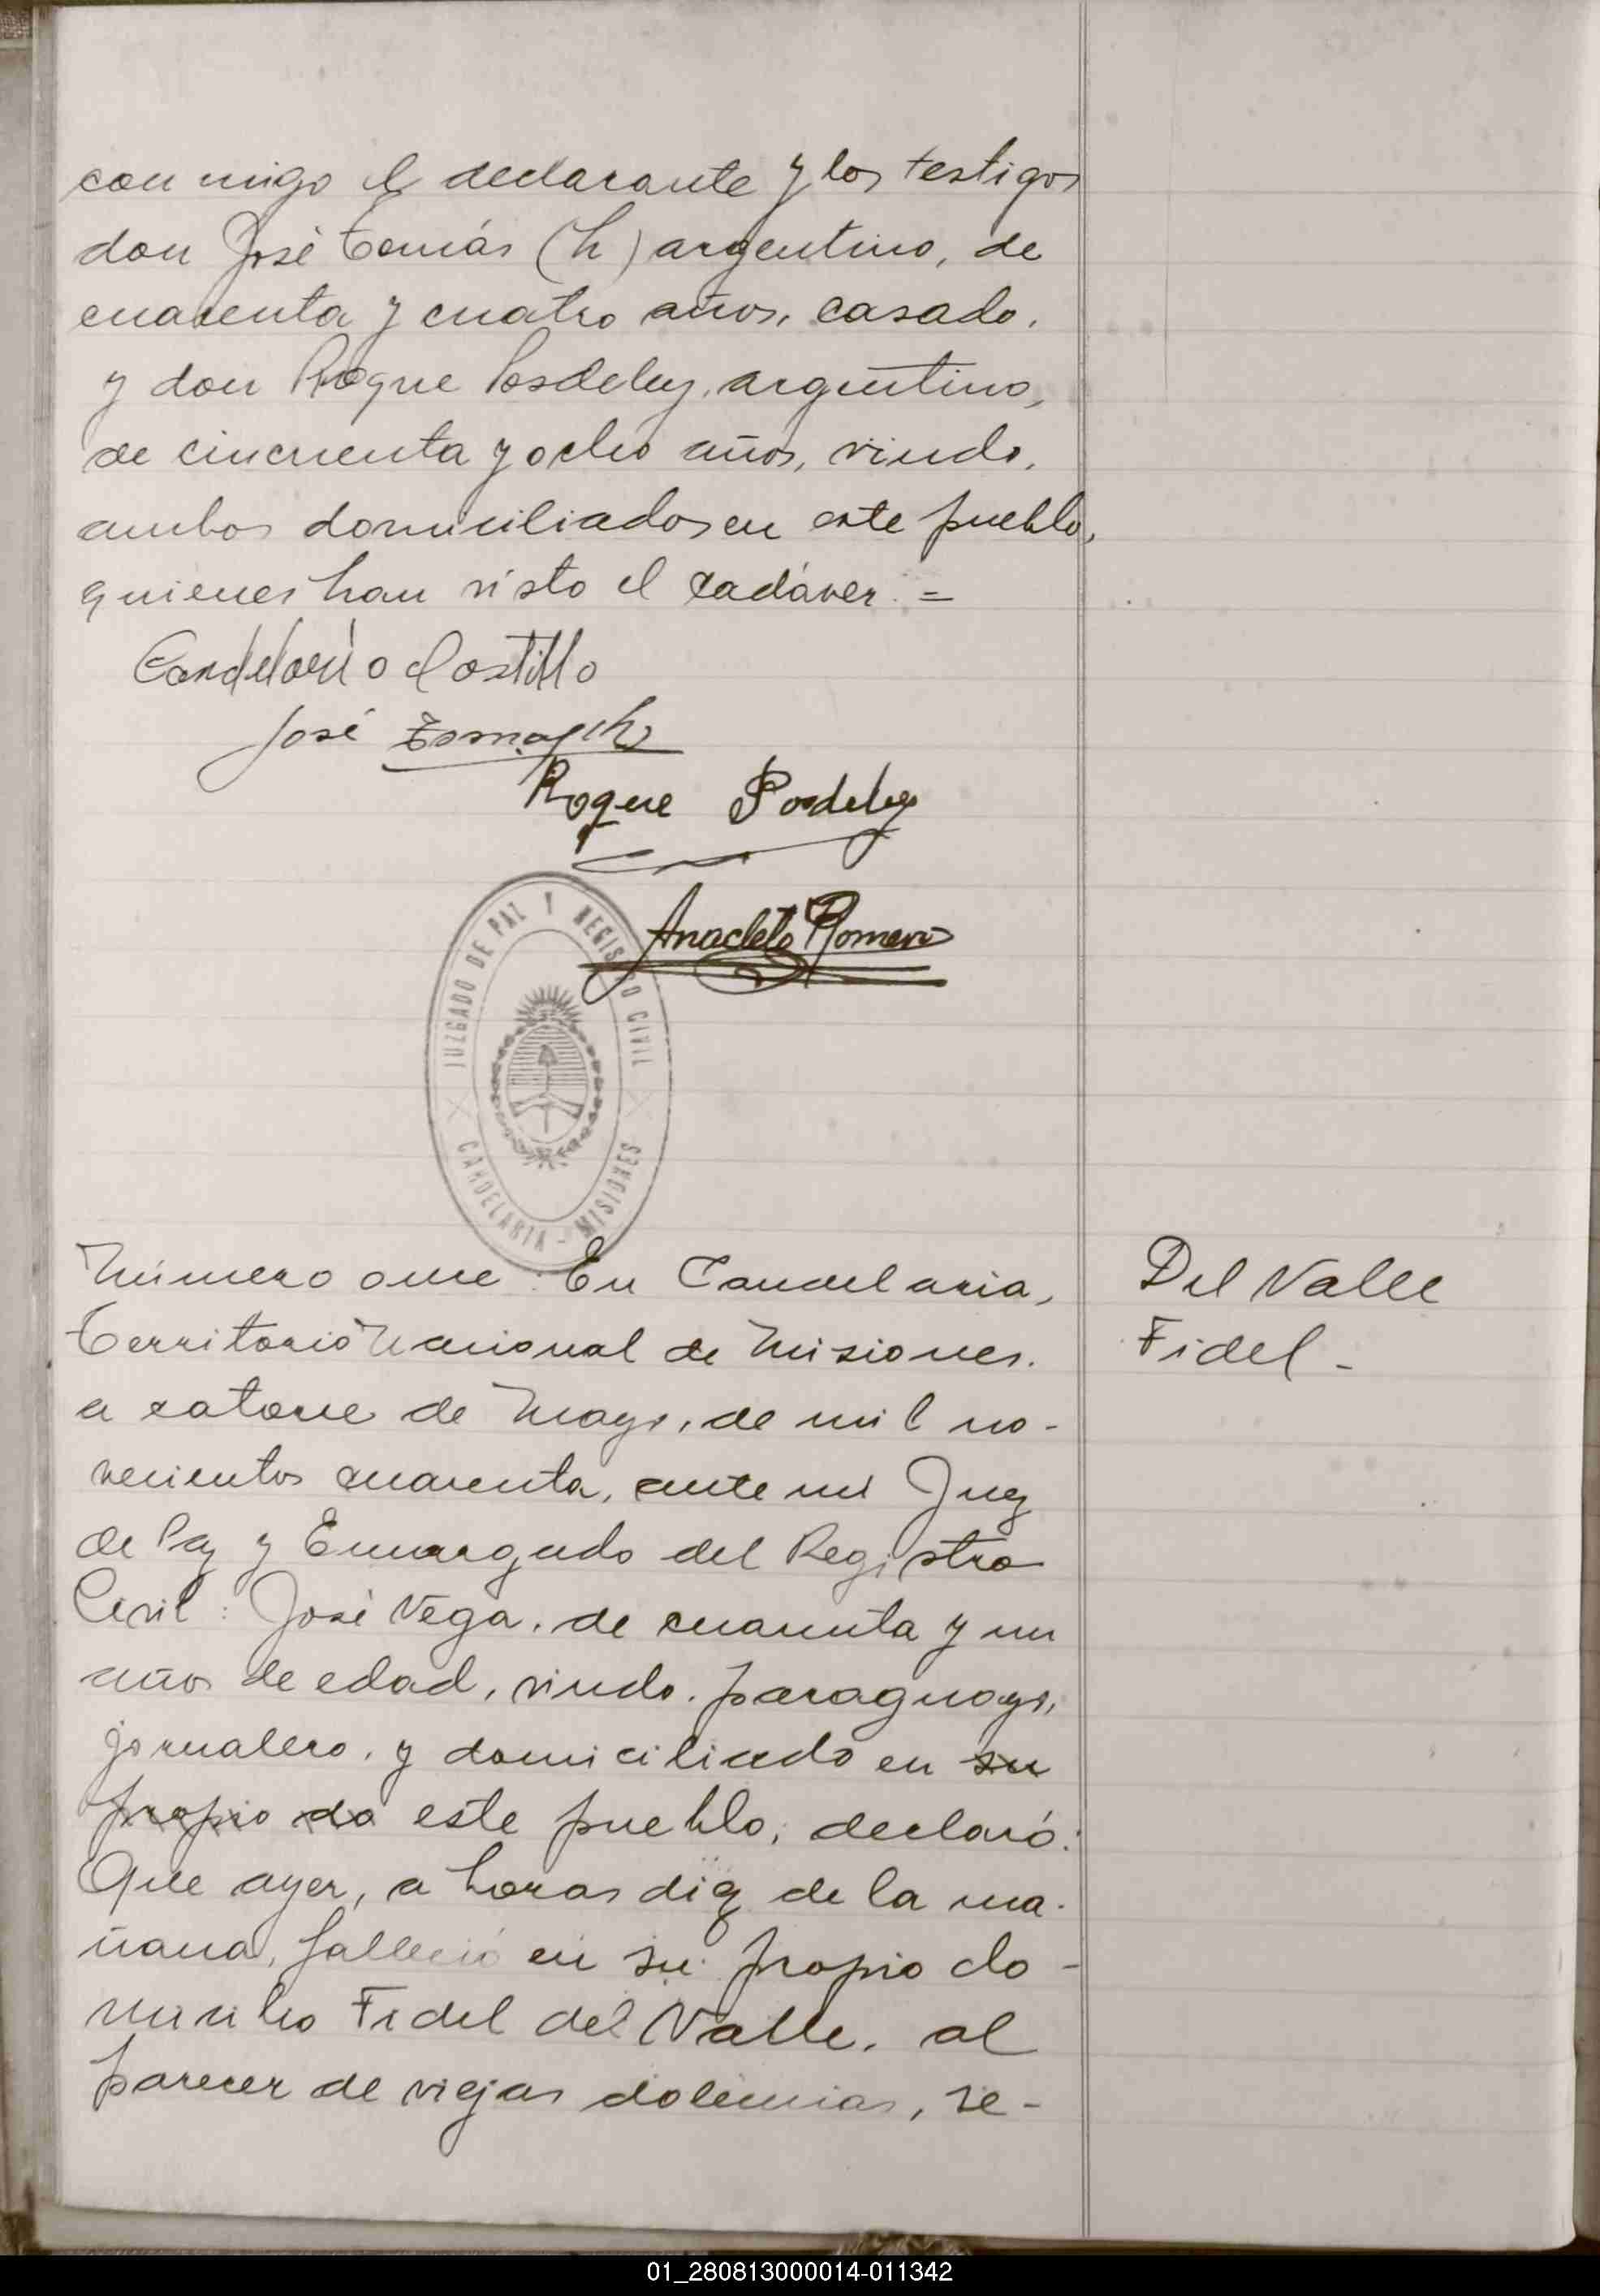 con migo el declarante y los testigos
don José Tomás (h) argentino, de
cuarenta y cuatro años, casado,
y don Roque Posdeley, argentino,
de cincuenta y ocho años, viudo,
ambos domiciliados en este pueblo,
quienes han visto el cadáver. =
Candelario Castillo
José Tomas (h)
Roque Posdeley
Anacleto Romero
JUZGADO DE PAZ Y REGISTRO CIVIL
CANDELARIA - MISIONES
Número once: En Candelaria,
Territorio Nacional de Misiones.
a catorce de Mayo, de mil no-
vecientos cuarenta, ante mi Juez
de Paz y Encargado del Registro
Civil: José Vega, de cuarenta y un
años de edad, viudo, paraguayo,
jornalero, y domiciliado en su
propio do este pueblo, declaró:
Que ayer, a horas diez de la ma-
ñana, falleció en su propio do-
micilio Fidel del Valle, al
parecer de viejas dolencias, se-
Del Valle
Fidel -
01_280813000014-011342